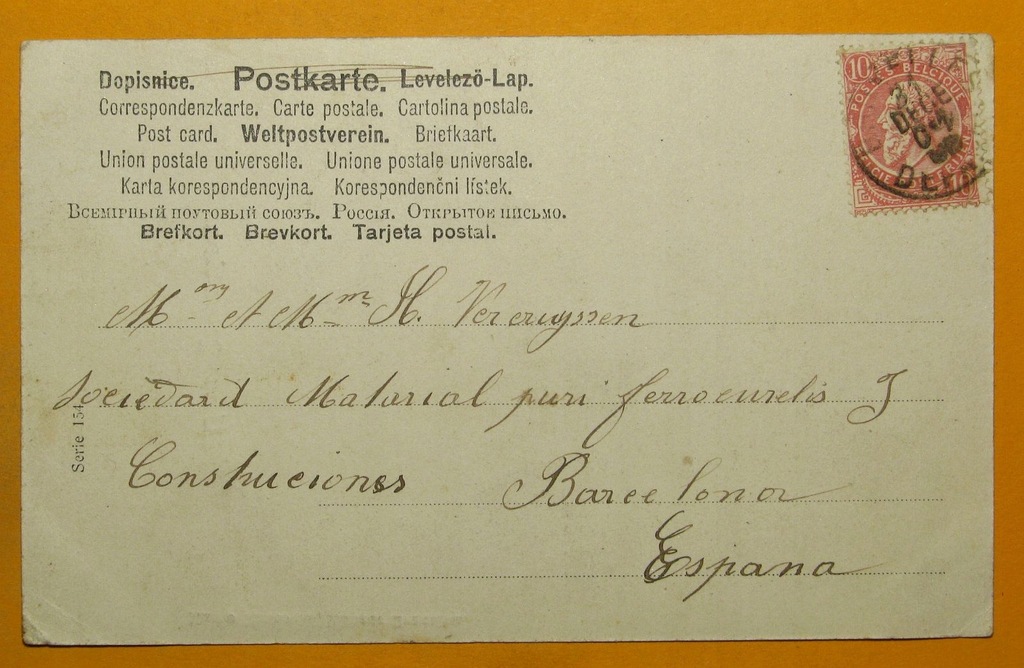 Dopisnice. Postkarte. Levelező-Lap.
Correspondenzkarte. Carte postale. Cartolina postale.
Post card. Weltpostverein. Briefkaart.
Union postale universelle. Unione postale universale.
Karta korespondencyjna. Korespondenční lístek.
Всемірный почтовый союзъ. Россія. Открытое письмо.
Brefkort. Brevkort. Tarjeta postal.
10 POSTES BELGIQUE
DECE
04
M et M H. Vercruyssen
Sociedard Matarial puri ferrocurelis J
Construciones Barcelona
Espana
Serie 154